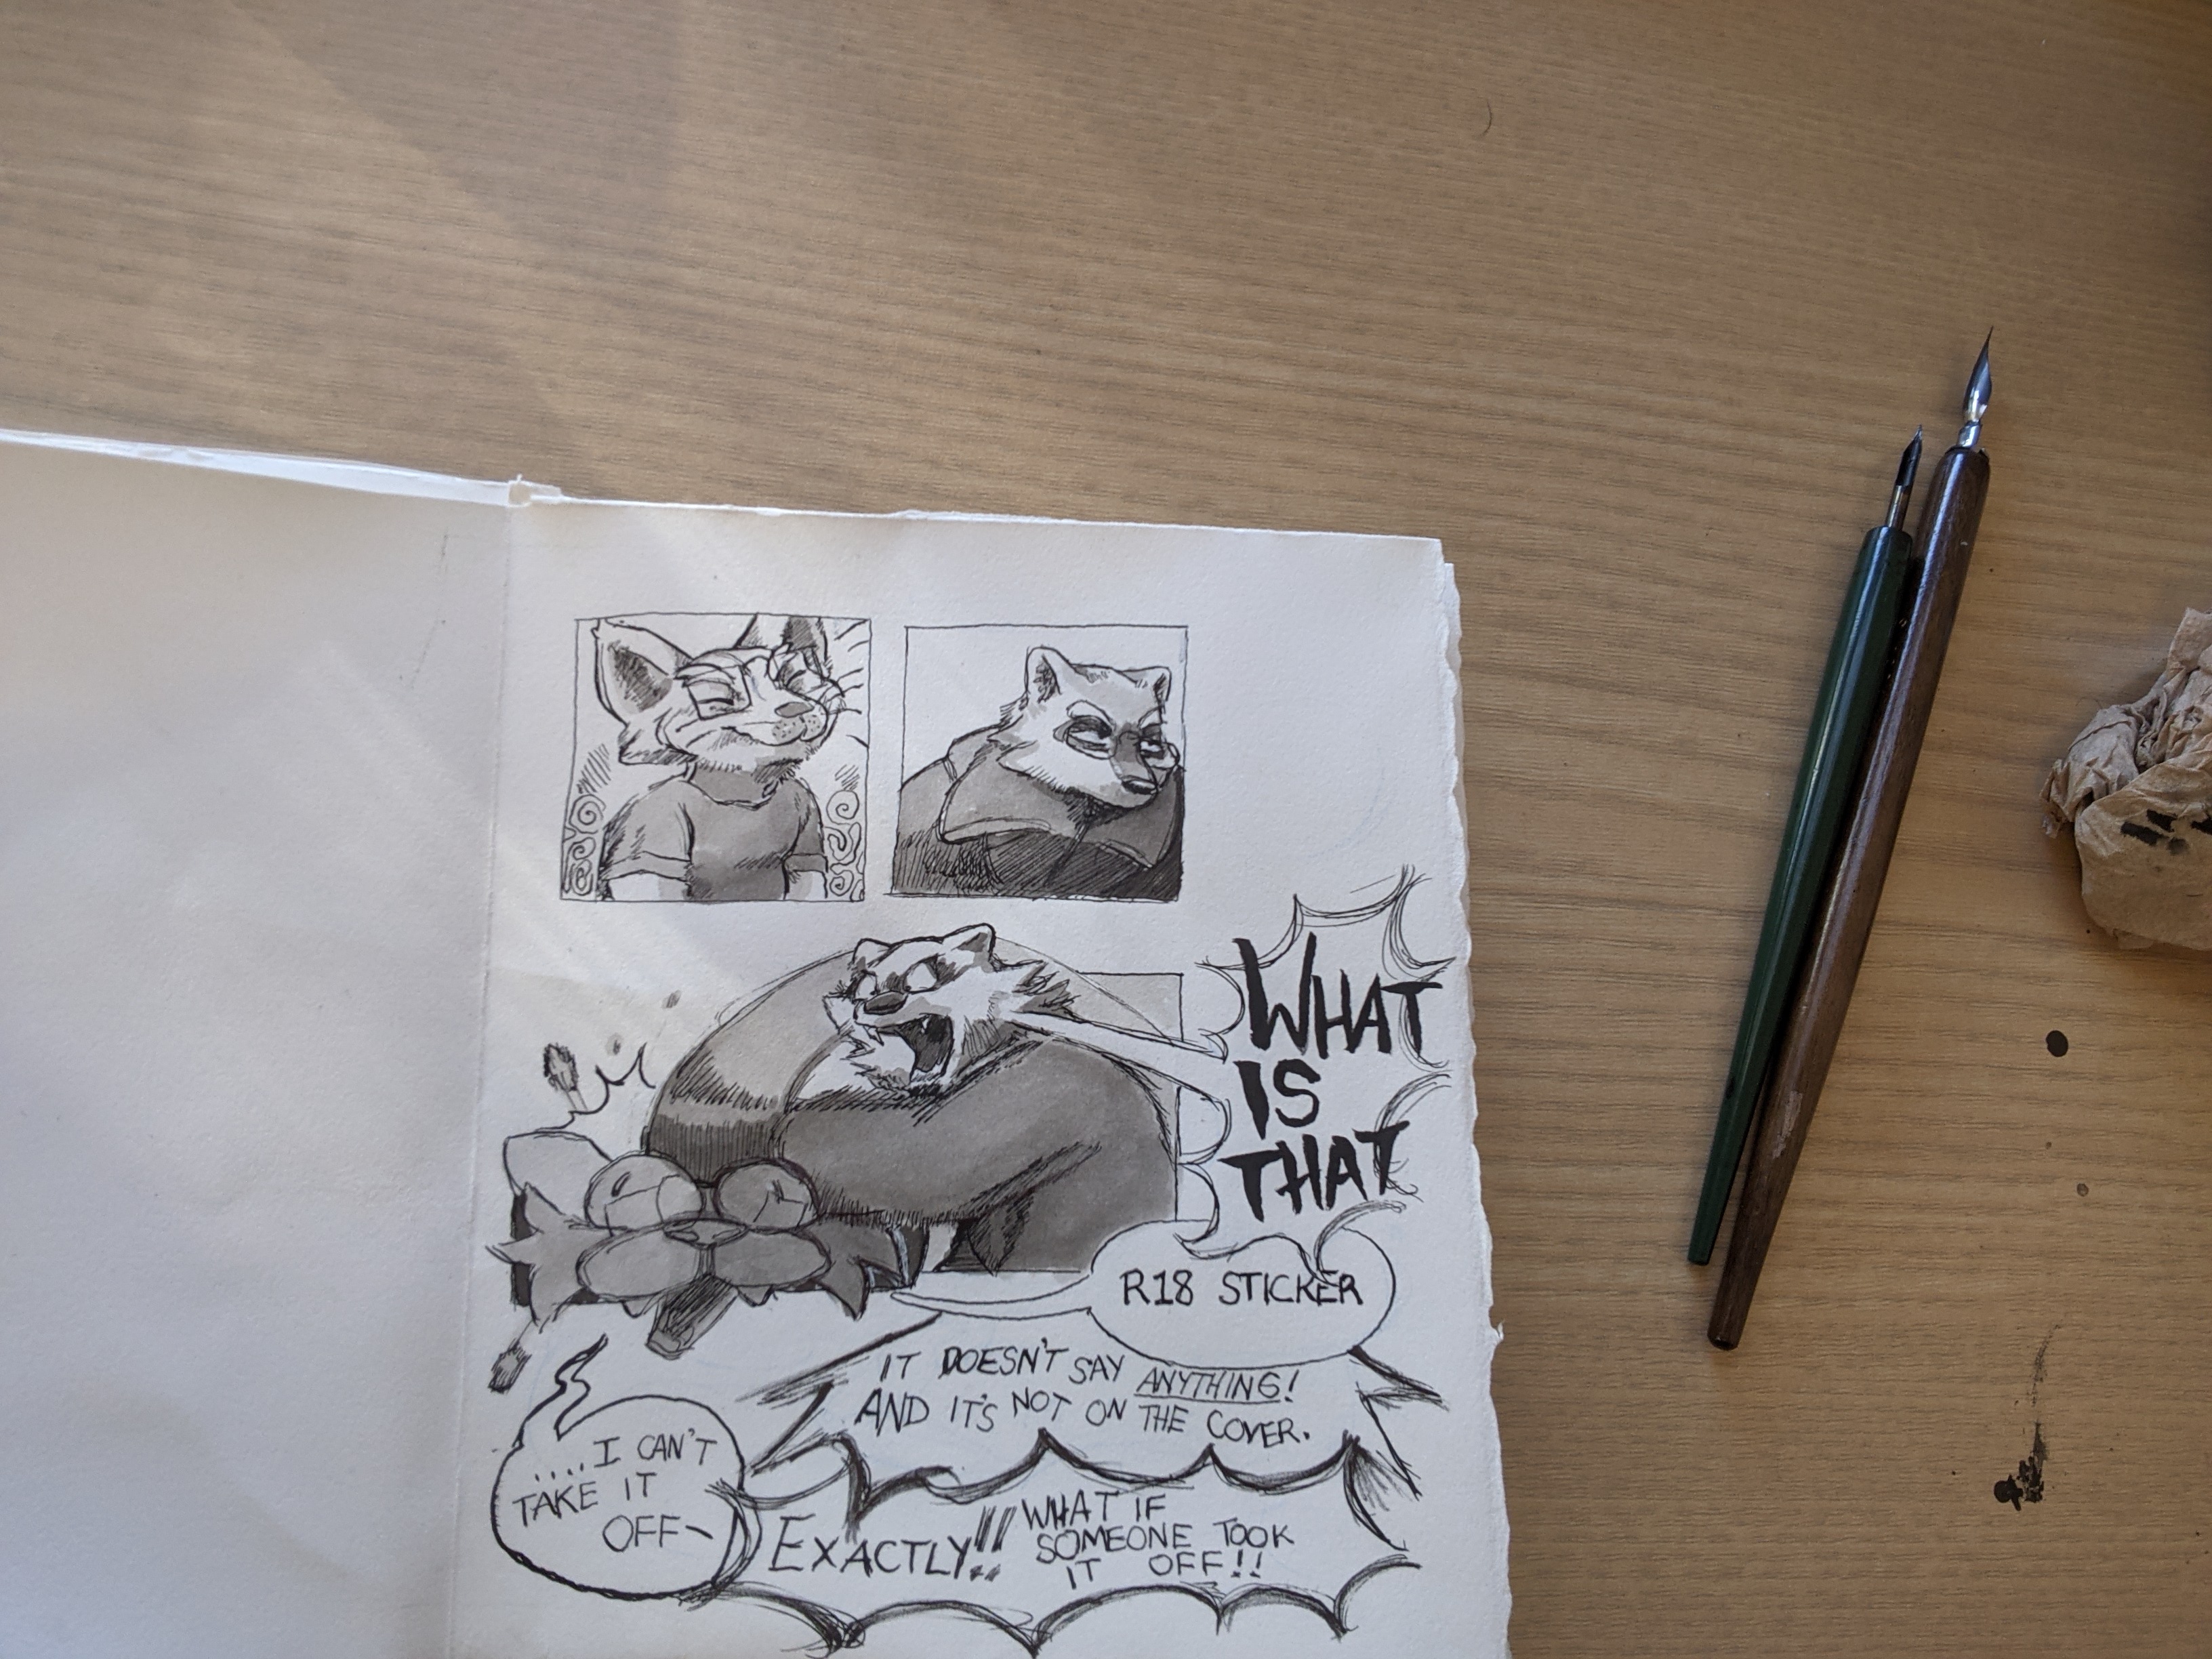 WHAT
IS
THAT
R18 STICKER
IT DOESN'T SAY ANYTHING!
AND IT'S NOT ON THE COVER.
....I CAN'T
TAKE IT
OFF-
EXACTLY!!
WHAT IF
SOMEONE TOOK
IT OFF!!